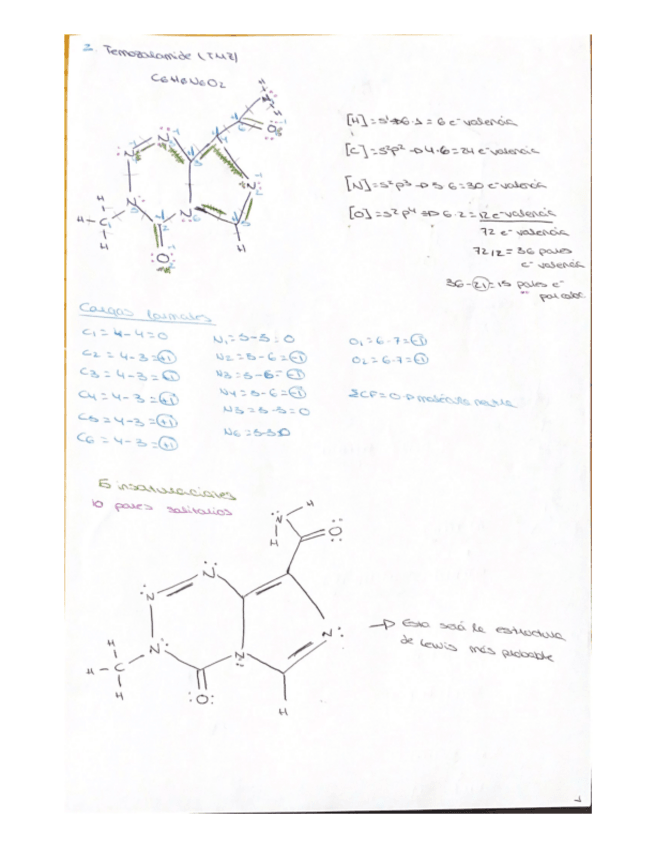 2. Temozolamide (TMZ)
C6H6N6O2
[H] = s¹ → 6·1 = 6 e⁻ valencia
[C] = s²p² → 4·6 = 24 e⁻ valencia
[N] = s²p³ → 5·6 = 30 e⁻ valencia
[O] = s²p⁴ → 6·2 = 12 e⁻ valencia
72 e⁻ valencia
72/2 = 36 pares
e⁻ valencia
36-21 = 15 pares e⁻
por coloc
Cargas formales
C1 = 4-4 = 0
C2 = 4-3 = +1
C3 = 4-3 = +1
C4 = 4-3 = +1
C5 = 4-3 = +1
C6 = 4-3 = +1
N1 = 5-5 = 0
N2 = 5-6 = -1
N3 = 5-6 = -1
N4 = 5-6 = -1
N5 = 5-5 = 0
N6 = 5-5=0
O1 = 6-7 = -1
O2 = 6-7 = -1
ΣCF = 0 → molécula neutra
5 insaturaciones
10 pares solitarios
→ Esta será la estructura
de Lewis más probable
1